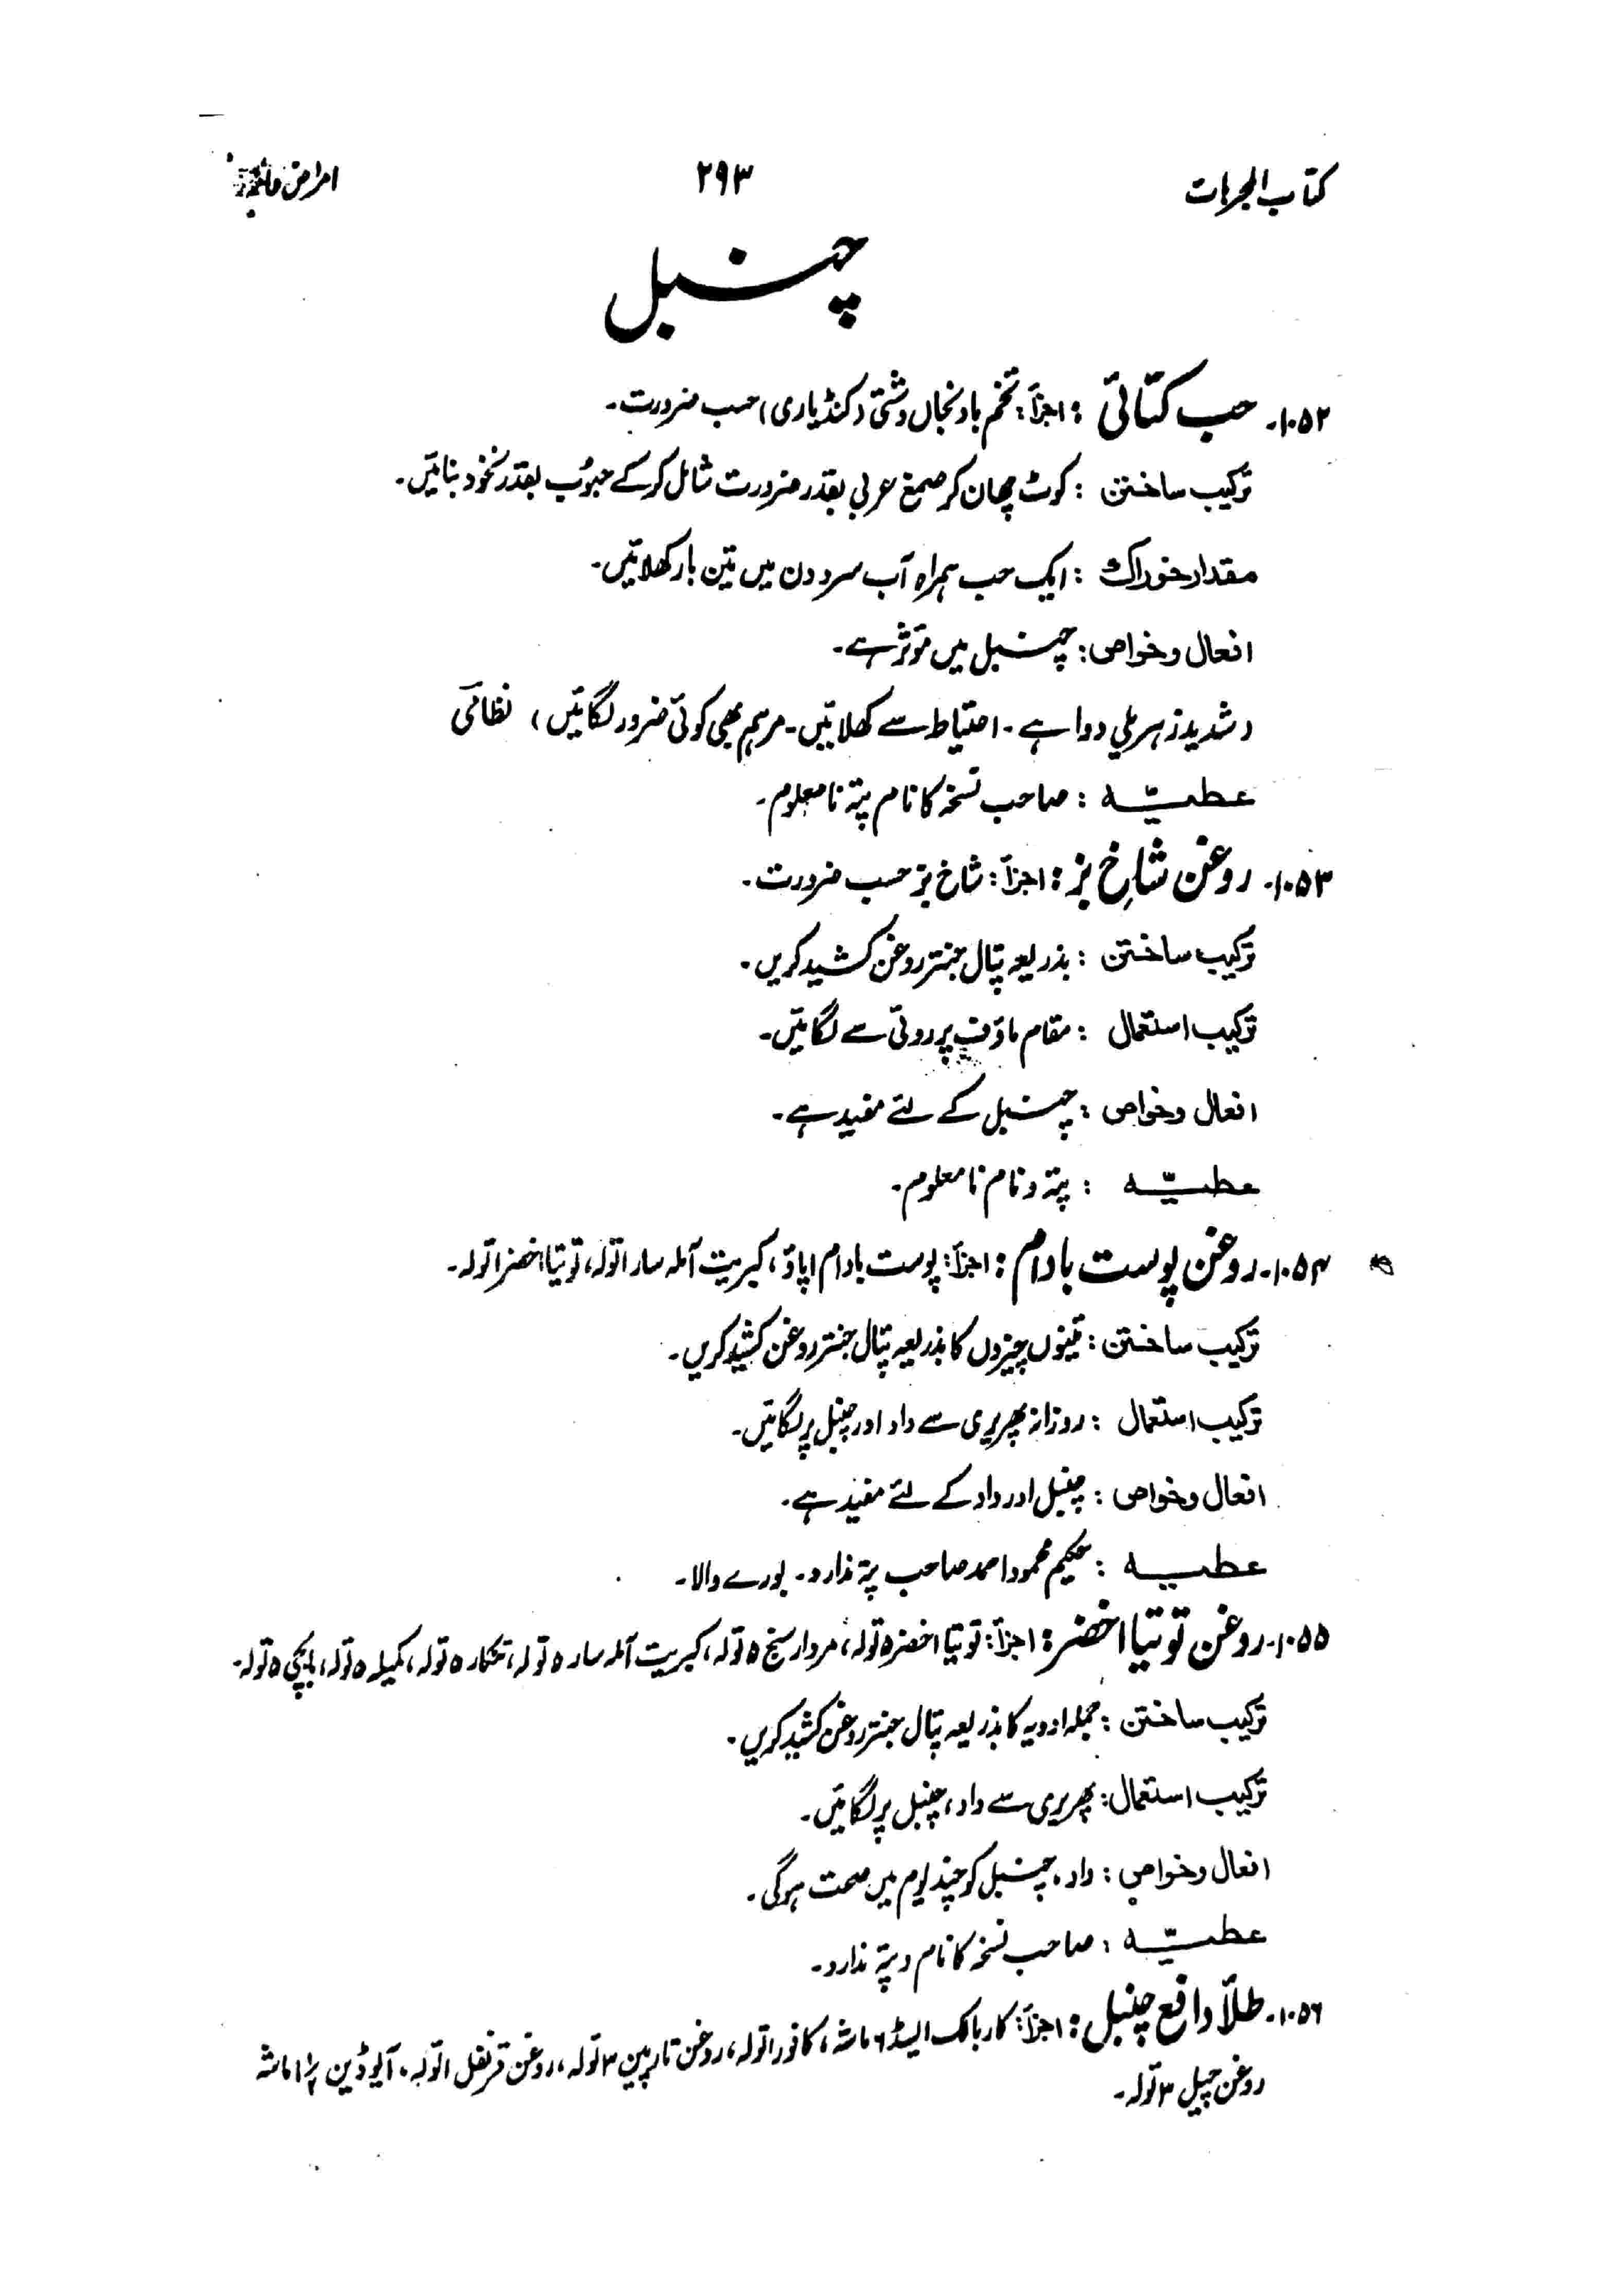 کتاب المجربات ۲۹۳ امراض
چنبل
۱۰۵۲۔ حب کتائی : اجزأ: تخم بادنجاں دشتی (کنڈیاری) حسب ضرورت۔
ترکیب ساختن : کوٹ چھان کر صمغ عربی بقدر ضرورت شامل کرکے حبوُب بقدر نخود بنائیں۔
مقدار خوراک : ایک حب ہمراہ آب سرد دن میں تین بار کھلائیں۔
افعال و خواص : چنبل میں مؤثر ہے۔
(شدید زہریلی دوا ہے۔ احتیاط سے کھلائیں۔ مرہم بھی کوئی ضرور لگائیں) نظامی
عطیّہ : صاحب نسخہ کا نام پتہ نامعلوم۔
۱۰۵۳۔ روغن شاخِ بز : اجزأ: شاخ بز حسب ضرورت۔
ترکیب ساختن : بذریعہ پتال جنتر روغن کشید کریں۔
ترکیب استعمال : مقام ماؤف پر روئی سے لگائیں۔
افعال و خواص : چنبل کے لئے مفید ہے۔
عطیّہ : پتہ و نام نامعلوم۔
۱۰۵۴۔ روغن پوست بادام : اجزأ: پوست بادام ۱پاؤ، کبریت آملہ سار ۱تولہ، توتیا اخضر ۱تولہ۔
ترکیب ساختن : تینوں چیزوں کا بذریعہ پتال جنتر روغن کشید کریں۔
ترکیب استعمال : روزانہ پھریری سے داد اور چنبل پر لگائیں۔
افعال و خواص : چنبل اور داد کے لئے مفید ہے۔
عطیہ : حکیم محمود احمد صاحب پتہ ندارد۔ بورے والا۔
۱۰۵۵۔ روغن توتیا اخضر : اجزأ: توتیا اخضر ۵ تولہ، مردار سنج ۵ تولہ، کبریت آملہ سار ۵ تولہ، تنکار ۵ تولہ، کمیلہ ۵ تولہ، بابچی ۵ تولہ۔
ترکیب ساختن : جملہ ادویہ کا بذریعہ پتال جنتر روغن کشید کریں۔
ترکیب استعمال : پھریری سے داد، چنبل پر لگائیں۔
افعال و خواص : داد، چنبل کو چند یوم میں صحت ہوگی۔
عطیّہ : صاحب نسخہ کا نام و پتہ ندارد۔
۱۰۵۶۔ طلأ دافع چنبل : اجزأ: کاربالک ایسڈ ۶ ماشہ، کافور ۱تولہ، روغن تارپین ۳ تولہ، روغن قرنفل ۱تولہ، آیوڈین ۱½ ماشہ
روغن چیل ۳ تولہ۔